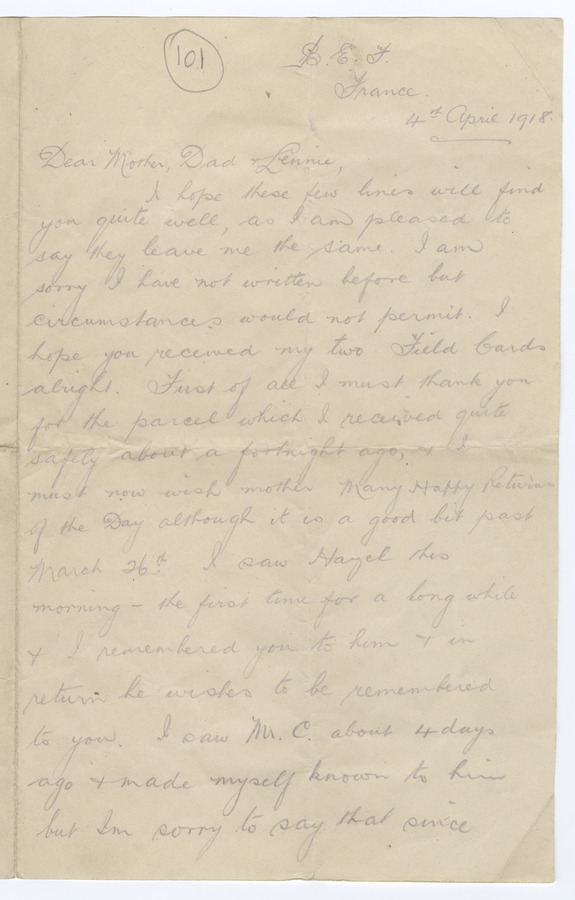 101
B. E. F.
France.
4th April 1918.
Dear Mother, Dad & Lennie,
I hope these few lines will find
you quite well, as I am pleased to
say they leave me the same. I am
sorry I have not written before but
circumstances would not permit. I
hope you received my two Field Cards
alright. First of all I must thank you
for the parcel which I received quite
safely about a fortnight ago, & I
must now wish mother Many Happy Returns
of the Day although it is a good bit past
March 26th. I saw Hazel this
morning – the first time for a long while
& I remembered you to him & in
return he wishes to be remembered
to you. I saw Mr. C. about 4 days
ago & made myself known to him
but Im sorry to say that since